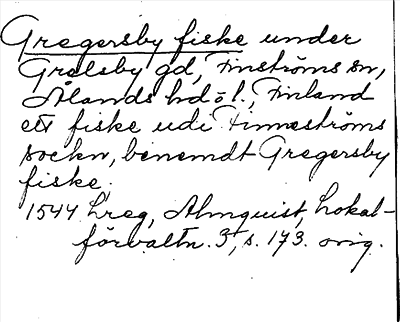 Gregersby fiske under
Grelsby gd, Finströms sn,
Ålands hd o l., Finland
ett fiske udi Finneströms
sockn, benemdt Gregersby
fiske.
1544 Lreg, Almquist, Lokal-
förvaltn. 3, s. 173. orig.